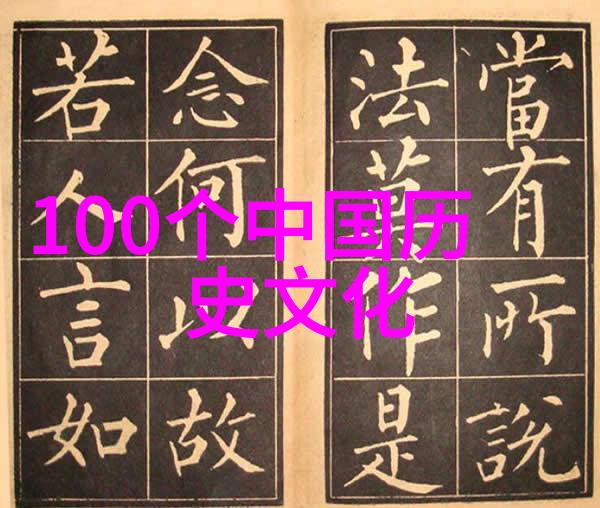 當有所說
法莫作是
念何以故
若人言如
100个中国历
史文化